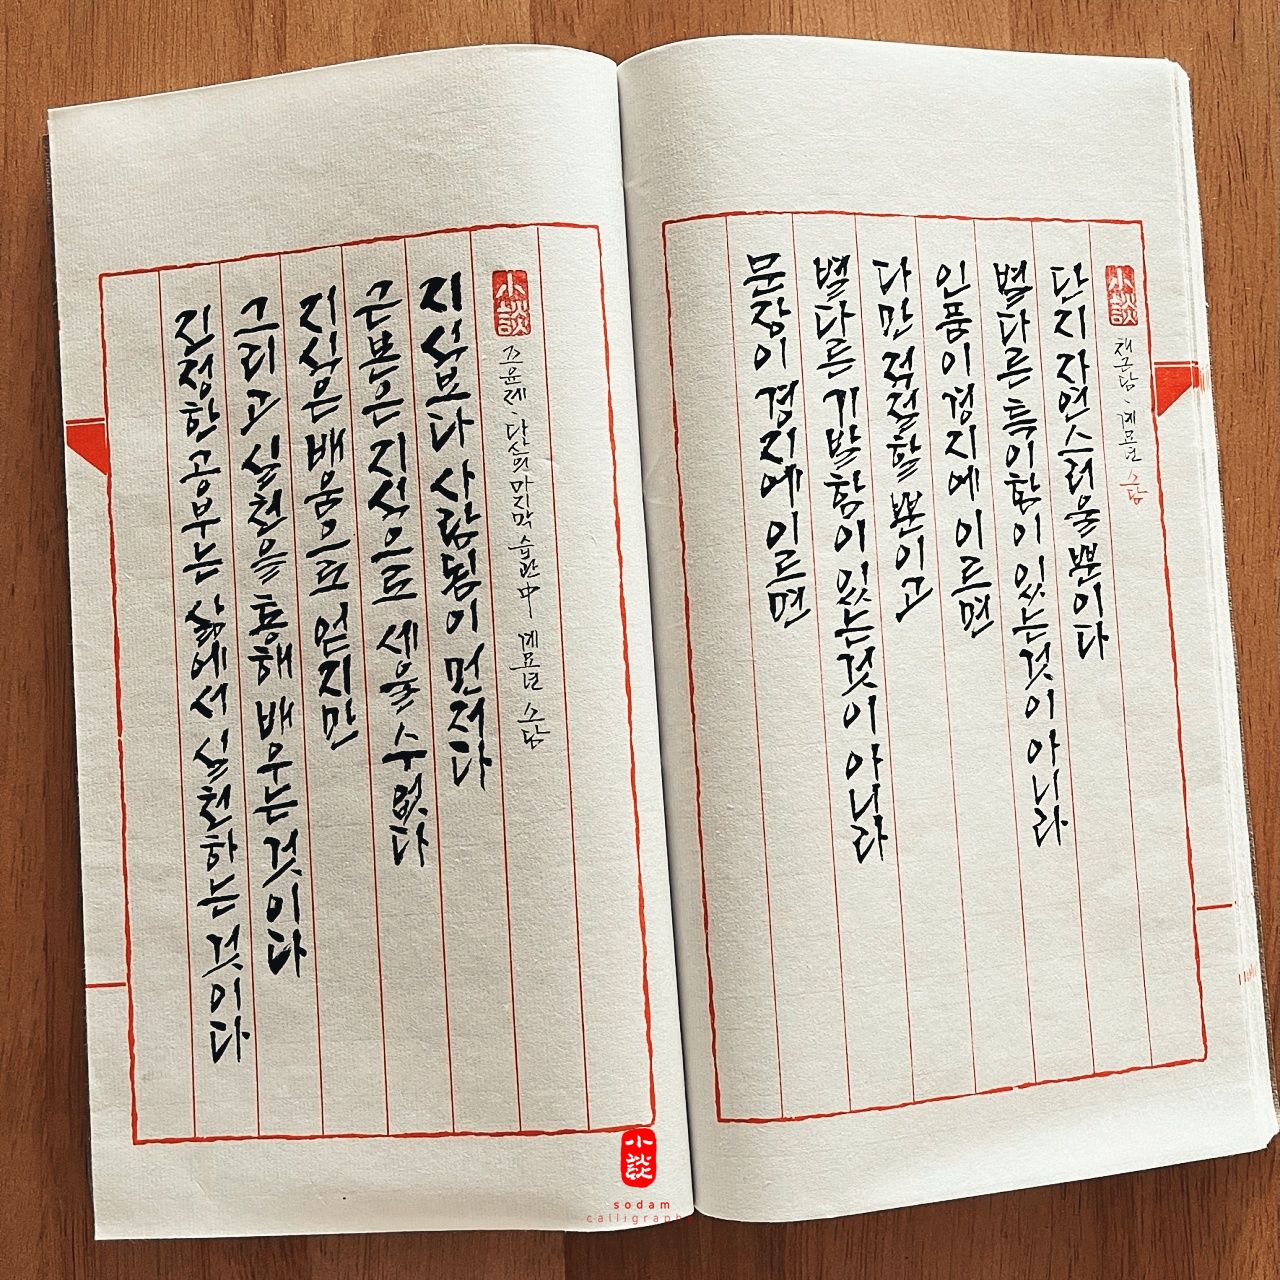 진정한 공부는 삶에서 실천하는 것이다
그리고 실천을 통해 배우는 것이다
지식은 배움으로 얻지만
근본은 지식으로 세울 수 없다
지식보다 사람됨이 먼저다
小談
조윤제, 다산의 마지막 습관 中 계묘년 소담
문장이 경지에 이르면
별다른 기발함이 있는것이 아니라
다만 적절할 뿐이고
인품이 경지에 이르면
별다른 특이함이 있는것이 아니라
단지 자연스러울 뿐이다
小談
채근담, 계묘년 소담
小談
sodam
calligraph